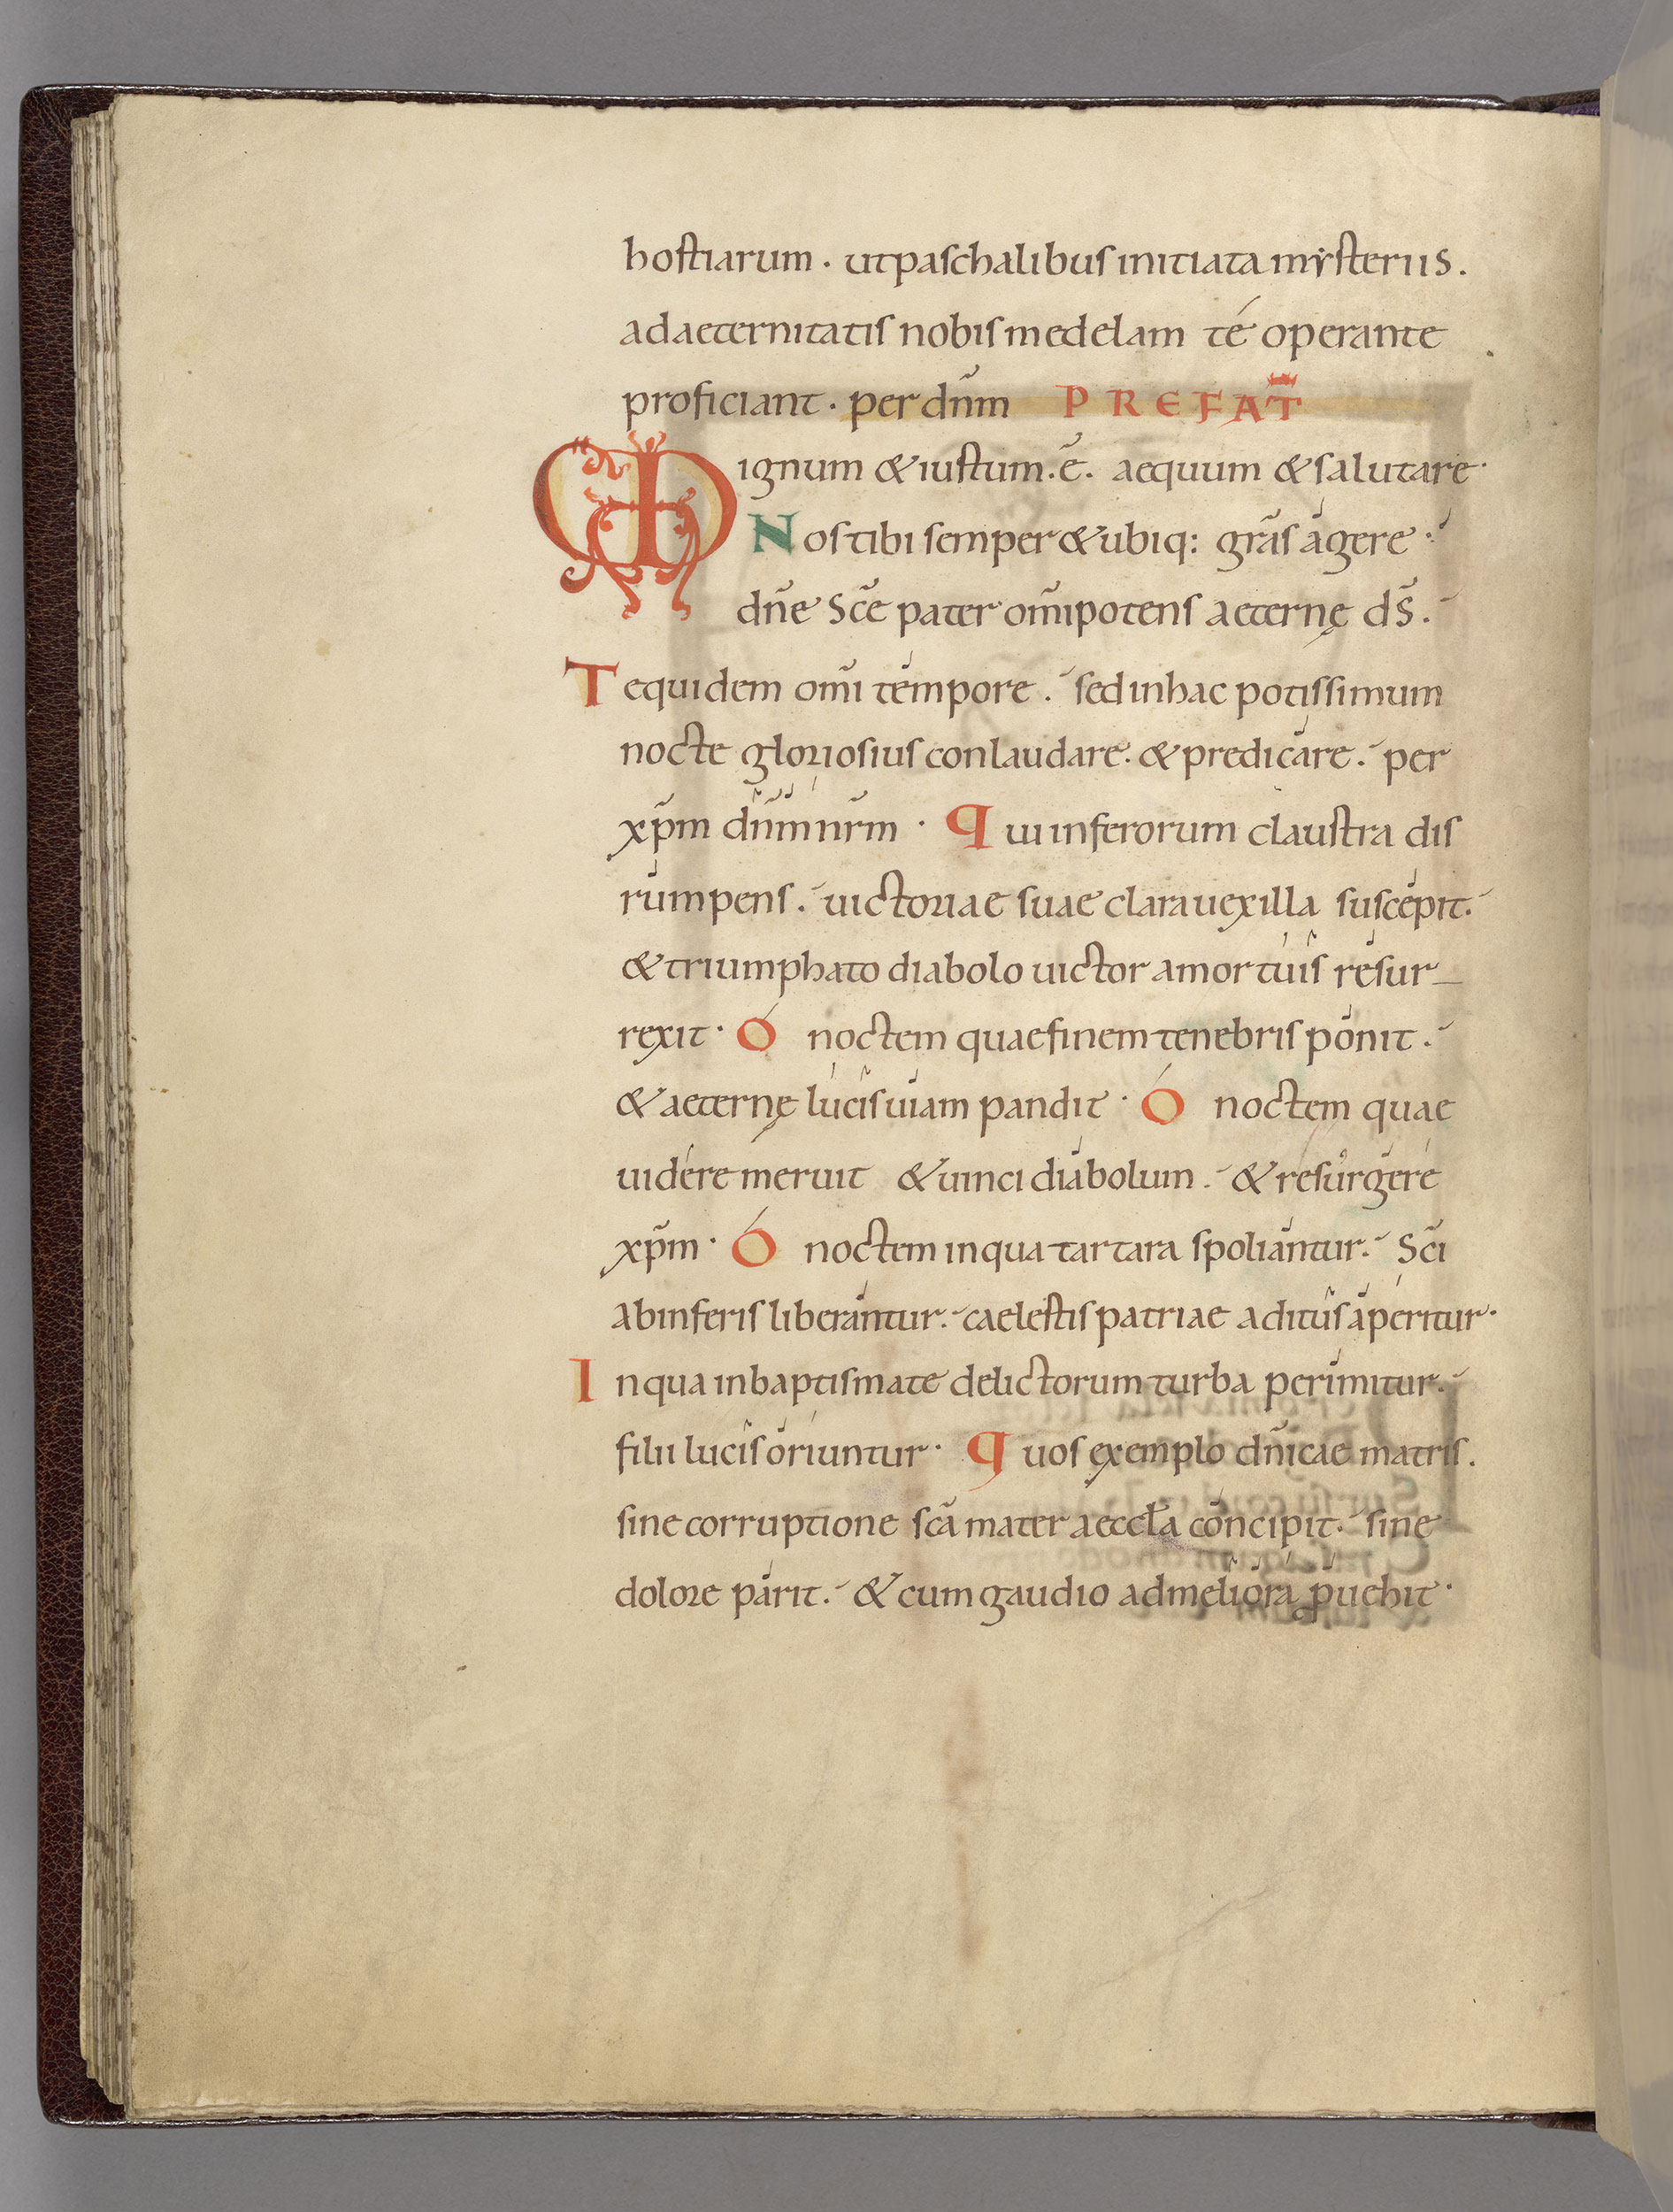 hostiarum · ut paschalibus initiata mysteriis .
ad aeternitatis nobis medelam té operante
proficiant · per dn̄m PREFAT̄
ignum & iustum · ē . aequum & salutare ·
Nos tibi semper & ubiq: grās agere
dn̄e sc̄e pater om̄ipotens aeternę ds̄ .
Te quidem om̄i tempore . sed in hac potissimum
nocte gloriosius conlaudare · & predicare . per
xp̄m dn̄m nr̄m · Qui inferorum claustra dis
rumpens . uictoriae suae clara uexilla suscepit .
& triumphato diabolo uictor a mortuis resur-
rexit · Ó noctem quae finem tenebris ponit .
& aeternę lucis uiam pandit · Ó noctem quae
uidere meruit & uinci diabolum . & resurgere
xp̄m · Ó noctem in qua tartara spoliantur . sc̄i
ab inferis liberantur . caelestis patriae aditus aperitur ·
In qua in baptismate delictorum turba perimitur .
filii lucis oriuntur · Quos exemplo dn̄icae matris .
sine corruptione sc̄a mater aeccl̄a concipit . sine
dolore parit . & cum gaudio ad meliora ꝓuehit ·